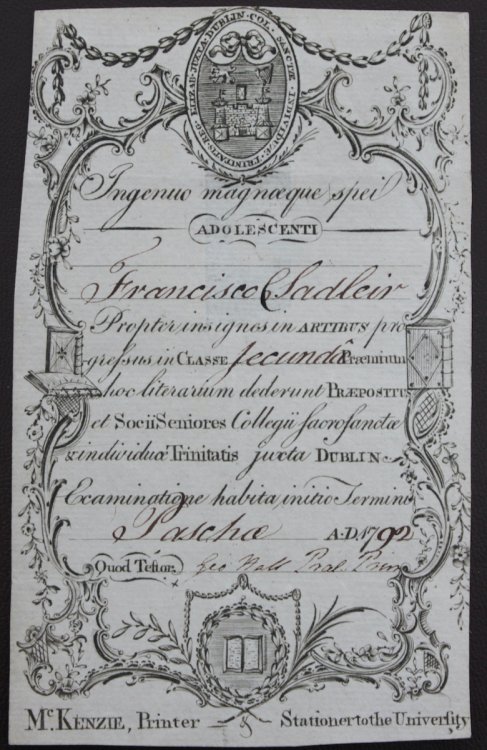 COL. SANCTÆ ET INDIVIDUÆ TRINITATIS REG. ELIZABETHÆ JUXTA DUBLIN
Ingenuo magnæque spei
ADOLESCENTI
Francisco Sadleir
Propter insignes in ARTIBUS pro
greſsus in CLASSE Secundâ Præmium
hoc literarium dederunt PRÆPOSITUS
et Socii Seniores Collegii sacrosanctæ
& individuæ Trinitatis juxta DUBLIN
Examinatione habita initio Termini
Paschæ A.D. 1792
Quod Teſtor Geo Hall Pral. Prim
Mc. KENZIE, Printer & Stationer to the Univerſity